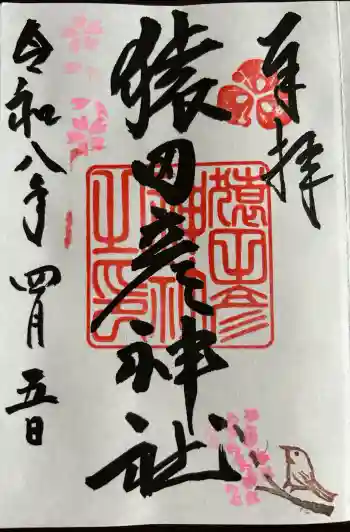 奉拝
猿田彦神社
猿田彦神社之印
令和八年 四月 五日